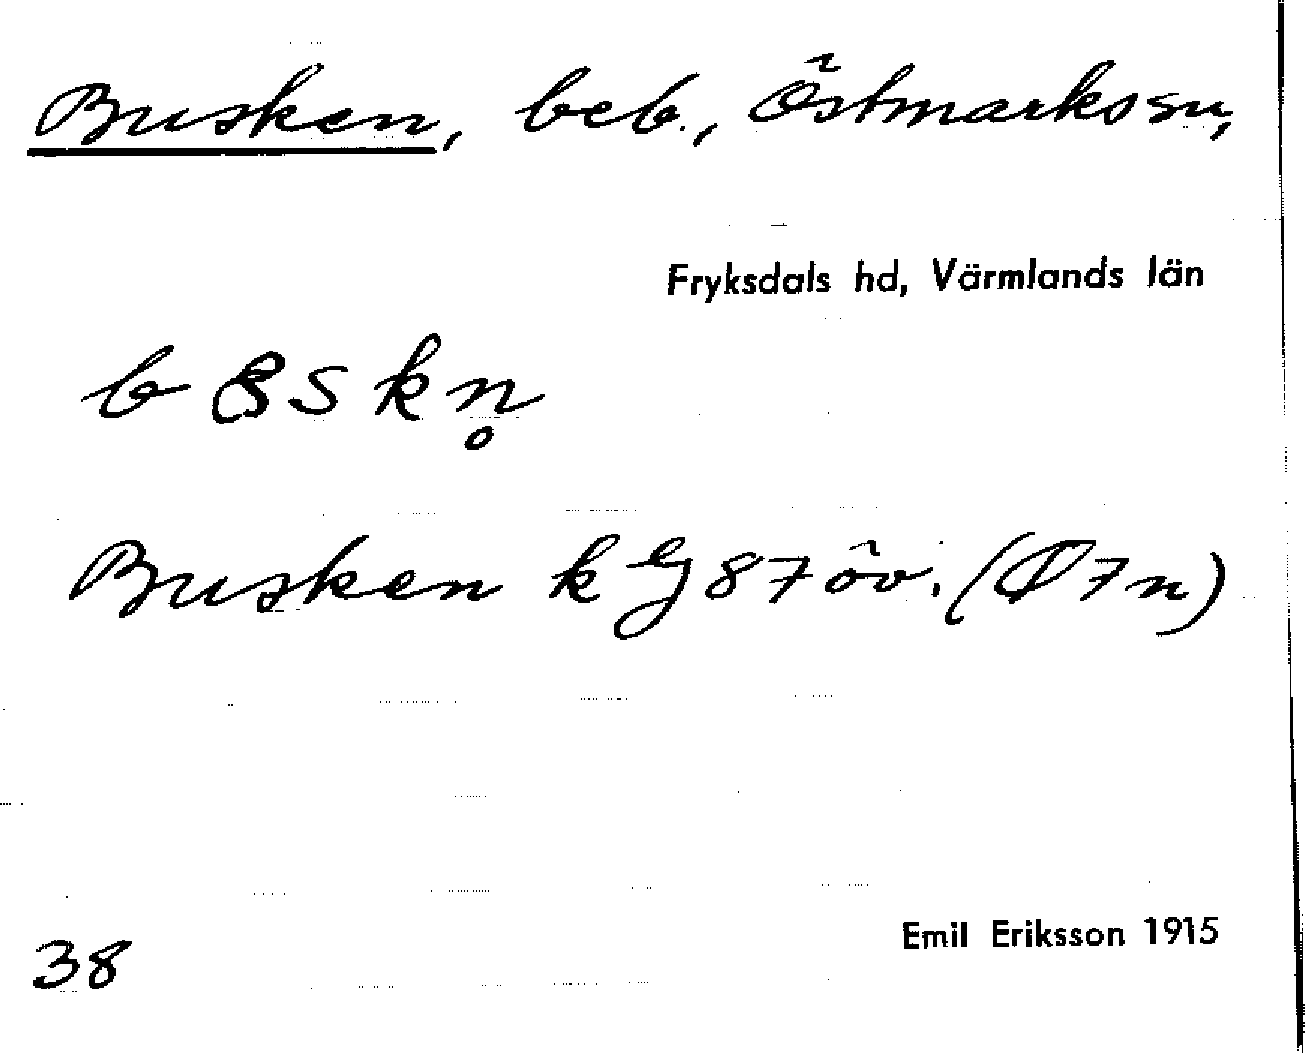 Busken, beb., Östmarks sn,
Fryksdals hd, Värmlands län
Busken k 87 öv.
38
Emil Eriksson 1915